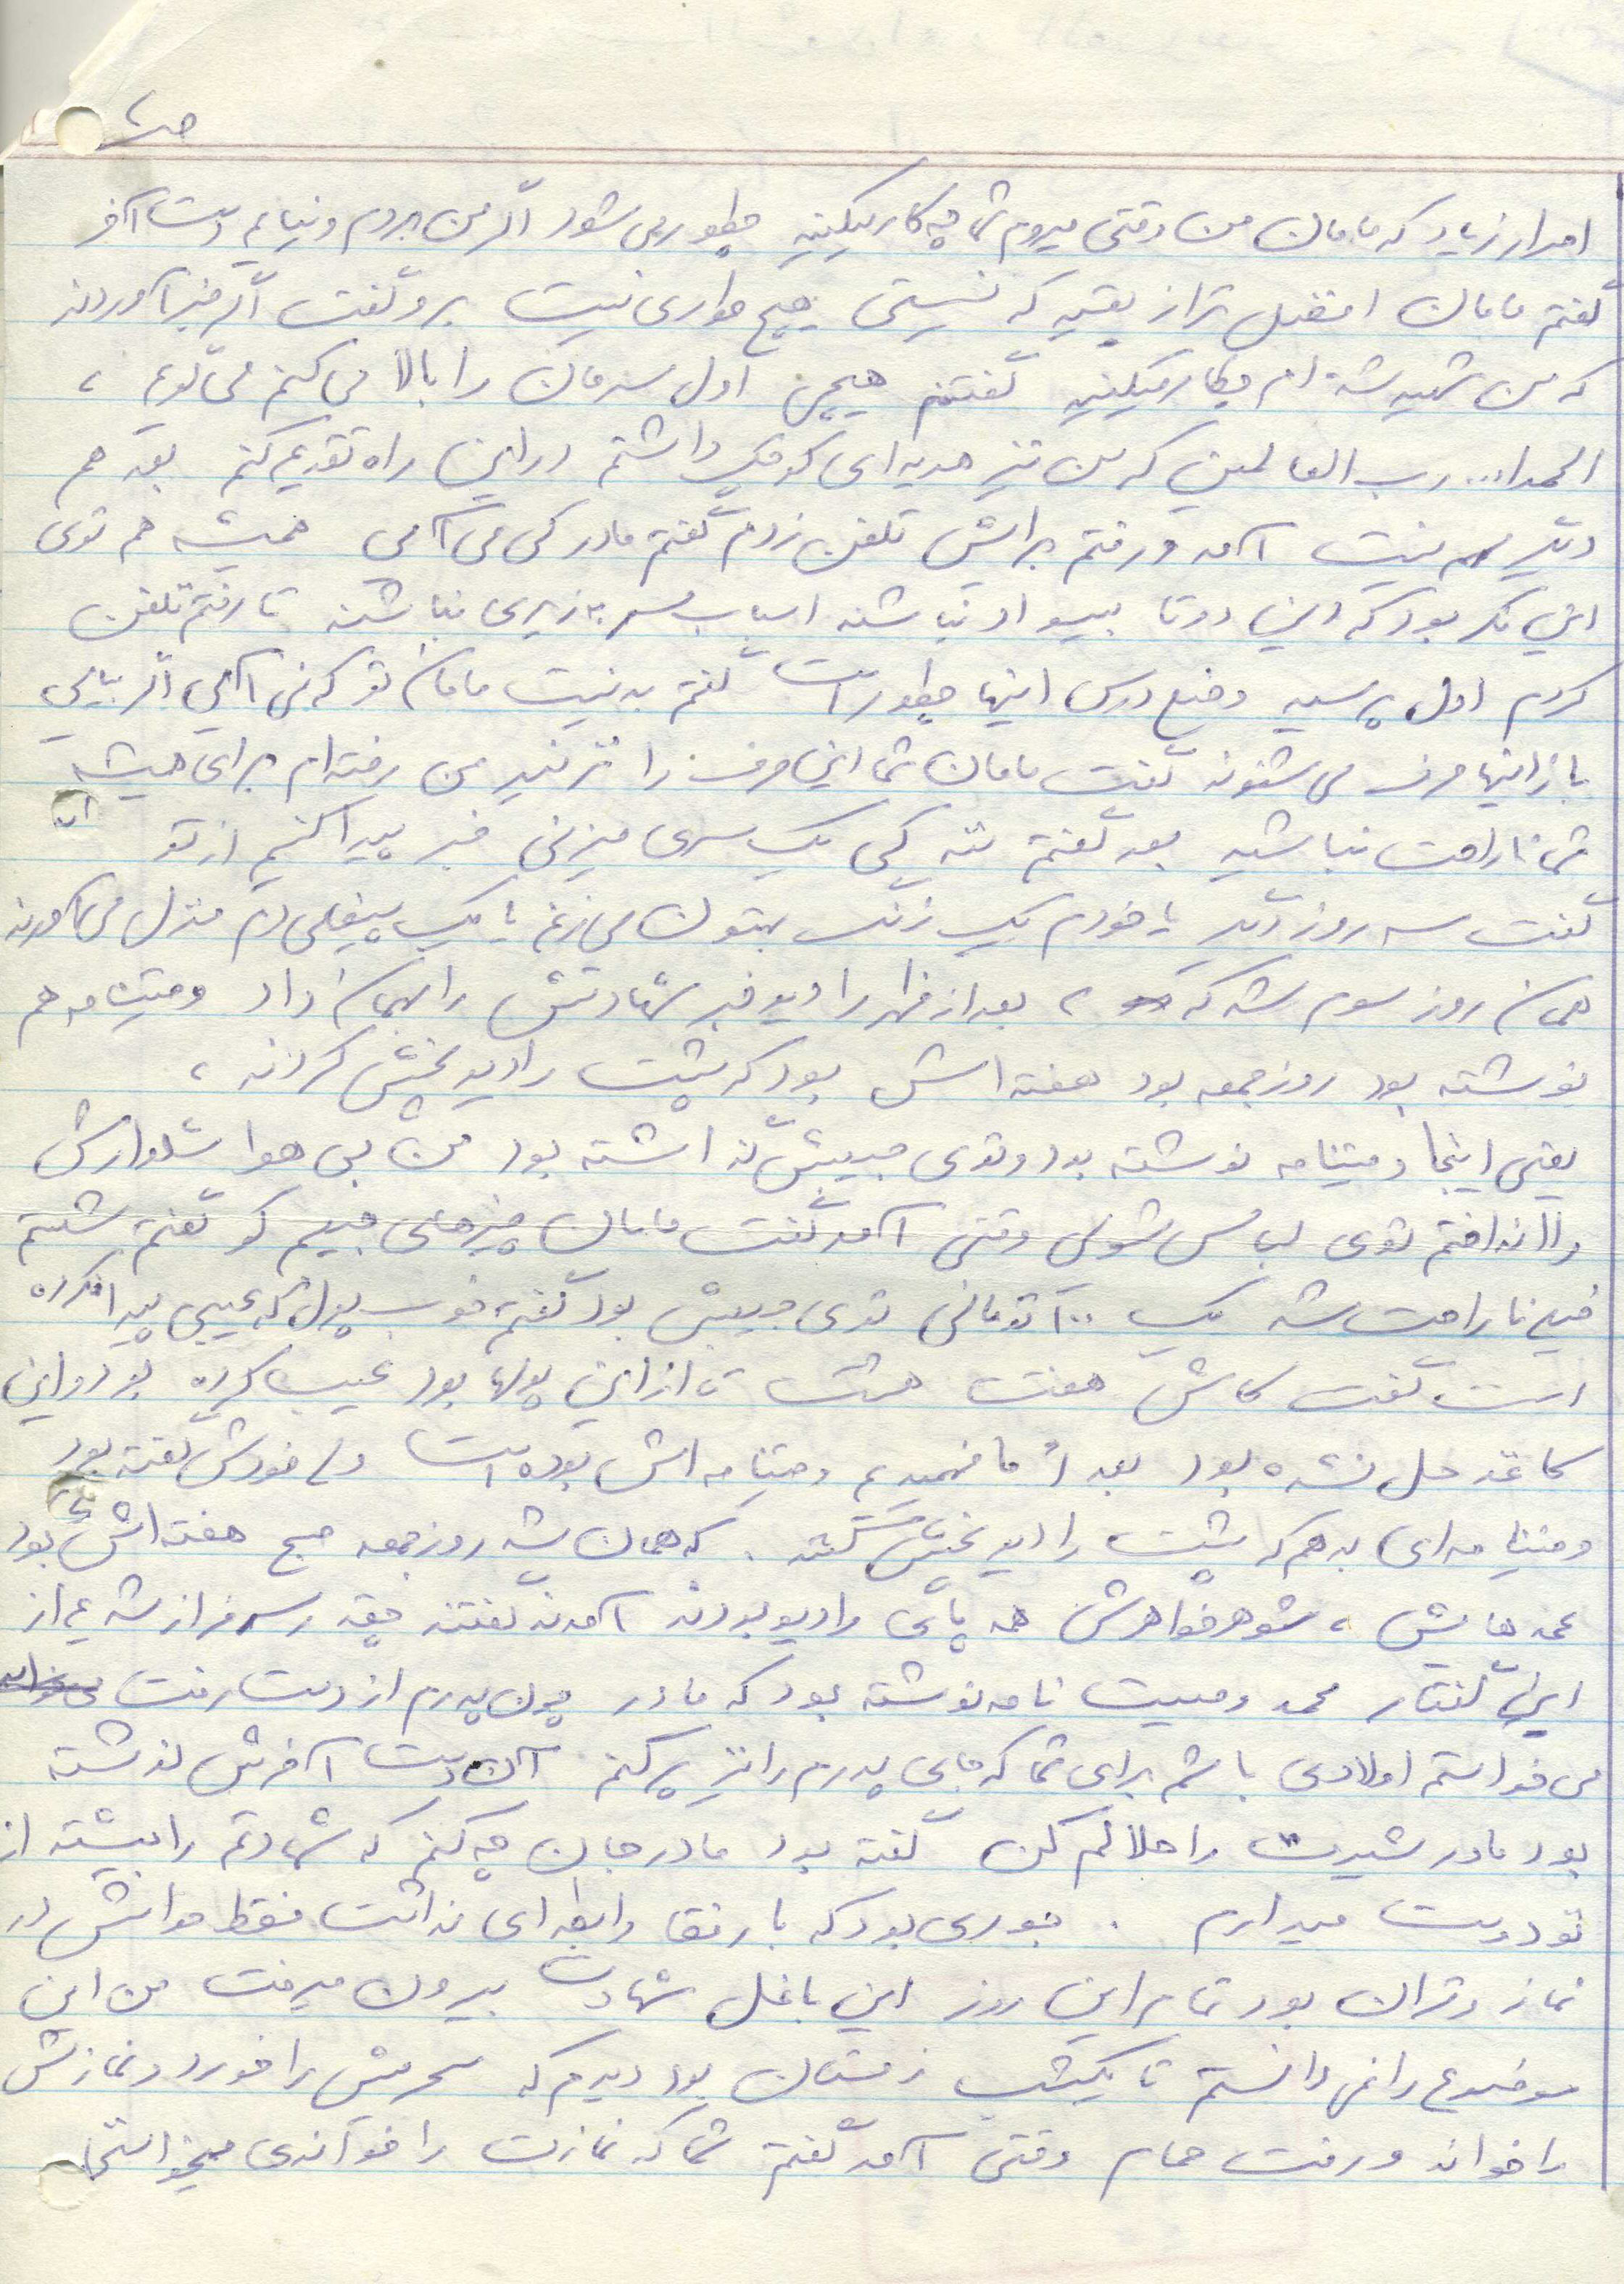 ص
اصرار زیاد که مامان من وقتی میروم شما چه کار میکنید چطور می شود اگر من بروم و نیایم دست آخر
گفتم مامان افضل تر از بقیه که نیستی هیچ مواردی نیست برو گفت اگر خبر آوردند
که من شهید شده ام چکار میکنید گفتم هیچی اول سرمان را بالا می کنم می گویم ،
الحمدا... رب العالمین که من نیز هدیه ای کوچک داشتم در این راه تقدیم کنم بعد هم
دیگر نیست آمد و رفتم برایش تلفن زدم گفتم مادر کی می آئی همیشه هم توی
این فکر بود که این دوتا بیسواد نباشند اسباب سر بزیری نباشند تا رفتم تلفن
کردم اول پرسید وضع درس اینها چطور است گفتم بد نیست مامان تو که نمی آئی اگر بیایی
باز اینها حرف می شنوند گفت مامان شما این حرف را نزنید من رفته ام برای همیشه
شما ناراحت نباشید بعد گفتم ننه کی یک سری میزنی خبر پیدا کنیم از تو
گفت سه روز دیگر یا خودم یک زنگ بهتون می زنم یا یک پیغامی دم منزل می آورند
همان روز سوم شد که ، بعد از ظهر رادیو خبر شهادتش را بهمان داد وصیتنامه هم
نوشته بود روز جمعه بود هفته اش بود که پشت رادیو پخش کردند ،
یعنی اینجا وصیتنامه نوشته بود و توی جیبش گذاشته بود من بی هوا شلوارش
را انداختم توی لباس شوئی وقتی آمد گفت مامان چیزهای جیبم کو گفتم شستم
خیلی ناراحت شد یک ۱۰۰ تومانی توی جیبش بود گفتم خوب پول که عیبی پیدا نکرده
است گفت کاش هفت هشت تا از این پولها بود عیب کرده بود و این
کاغذ حل نشده بود بعداً ما فهمیدیم وصیتنامه اش بوده است ولی خودش گفته بود
وصیتنامه ای بدهم که پشت رادیو پخش کنند . که همان شد روز جمعه صبح هفته اش بود
عمه هایش ، شوهر خواهرش همه پای رادیو بودند آمدند گفتند چقدر سرفراز شدیم از
این گفتار محمد وصیت نامه نوشته بود که مادر چون پدرم از دست رفت
می خواستم اولادی باشم برای شما که جای پدرم را نیز پر کنم آن دست آخرش نوشته
بود مادر شیرت را حلالم کن گفته بود مادر جان چه کنم که شهادتم را بیشتر از
تو دوست میدارم . جوری بود که با رفقا رابطه ای نداشت فقط حواسش در
نماز و قرآن بود تمام این روز این با غسل شهادت بیرون میرفت من این
موضوع را نمی دانستم تا یکشب زمستان بود دیدم که سحریش را خورد و نمازش
را خواند و رفت حمام وقتی آمد گفتم شما که نمازت را خواندی میخواستی